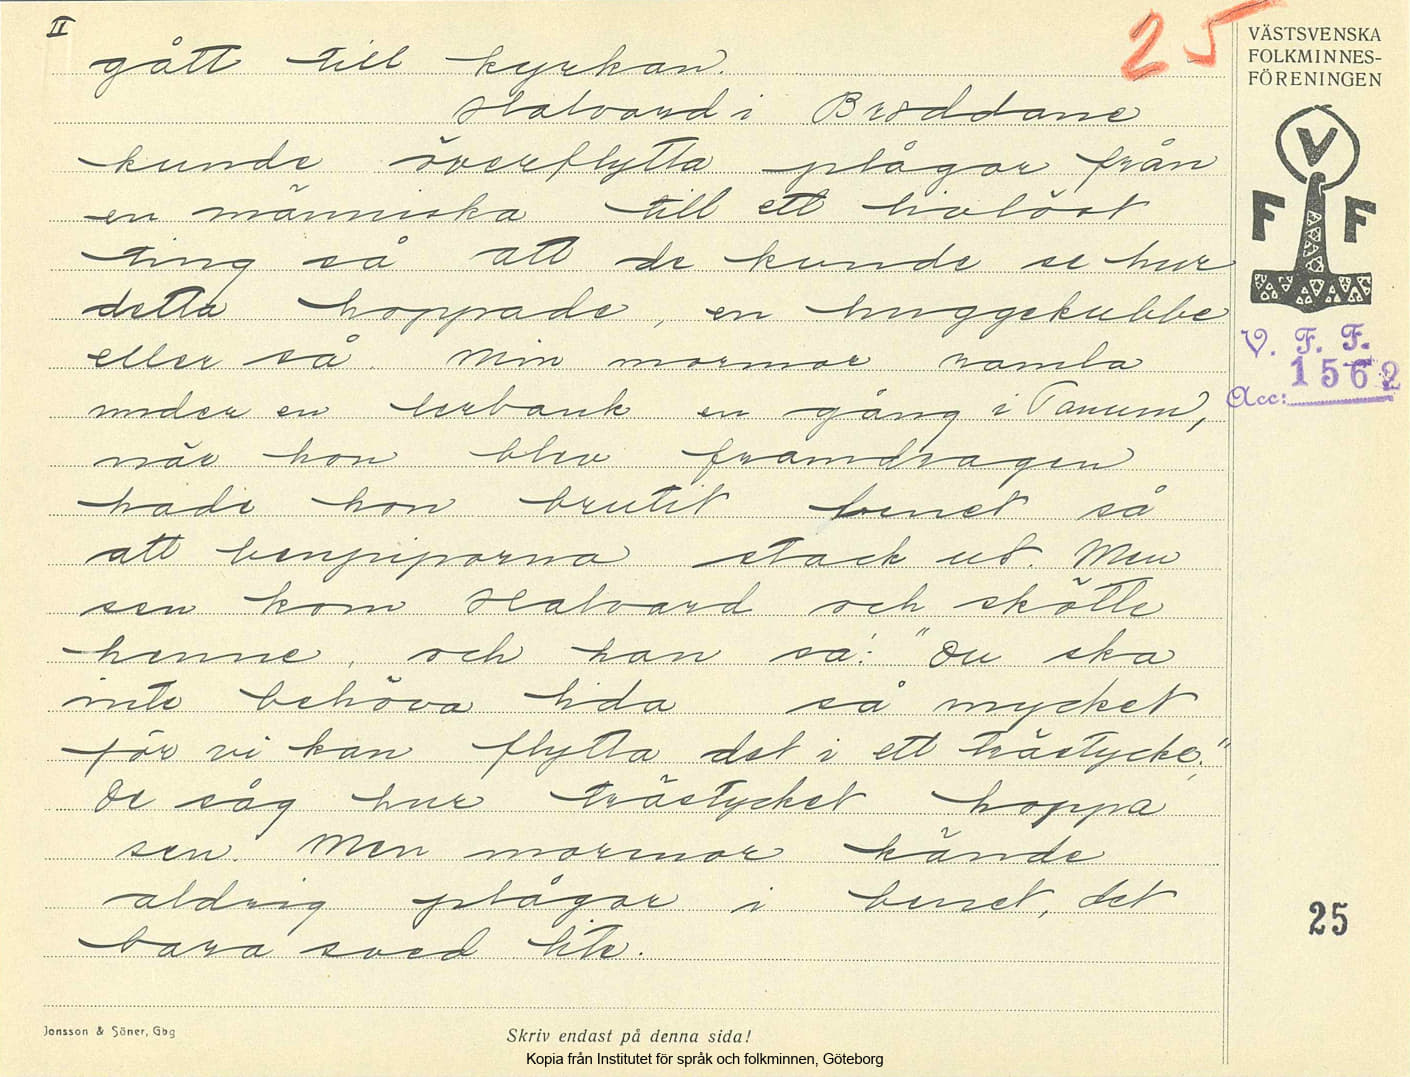 II
25
VÄSTSVENSKA
FOLKMINNES-
FÖRENINGEN
V
F F
V. F. F.
1562
Acc:
gått till kyrkan.
Halvard i Bräddane
kunde överflytta plågor från
en människa till ett livlöst
ting så att de kunde se hur
detta hoppade, en huggekubbe
eller så. Min mormor ramla
under en lerbank en gång i Tanum,
när hon blev framdragen
hade hon brutit benet så
att benpiporna stack ut. Men
sen kom Halvard och skötte
henne, och han sa: "Du ska
inte behöva lida så mycket
för vi kan flytta det i ett trästycke."
De såg hur trästycket hoppa
sen. Men mormor kände
aldrig plågor i benet, det
bara sved lite.
25
Jonsson & Söner, Gbg
Skriv endast på denna sida!
Kopia från Institutet för språk och folkminnen, Göteborg